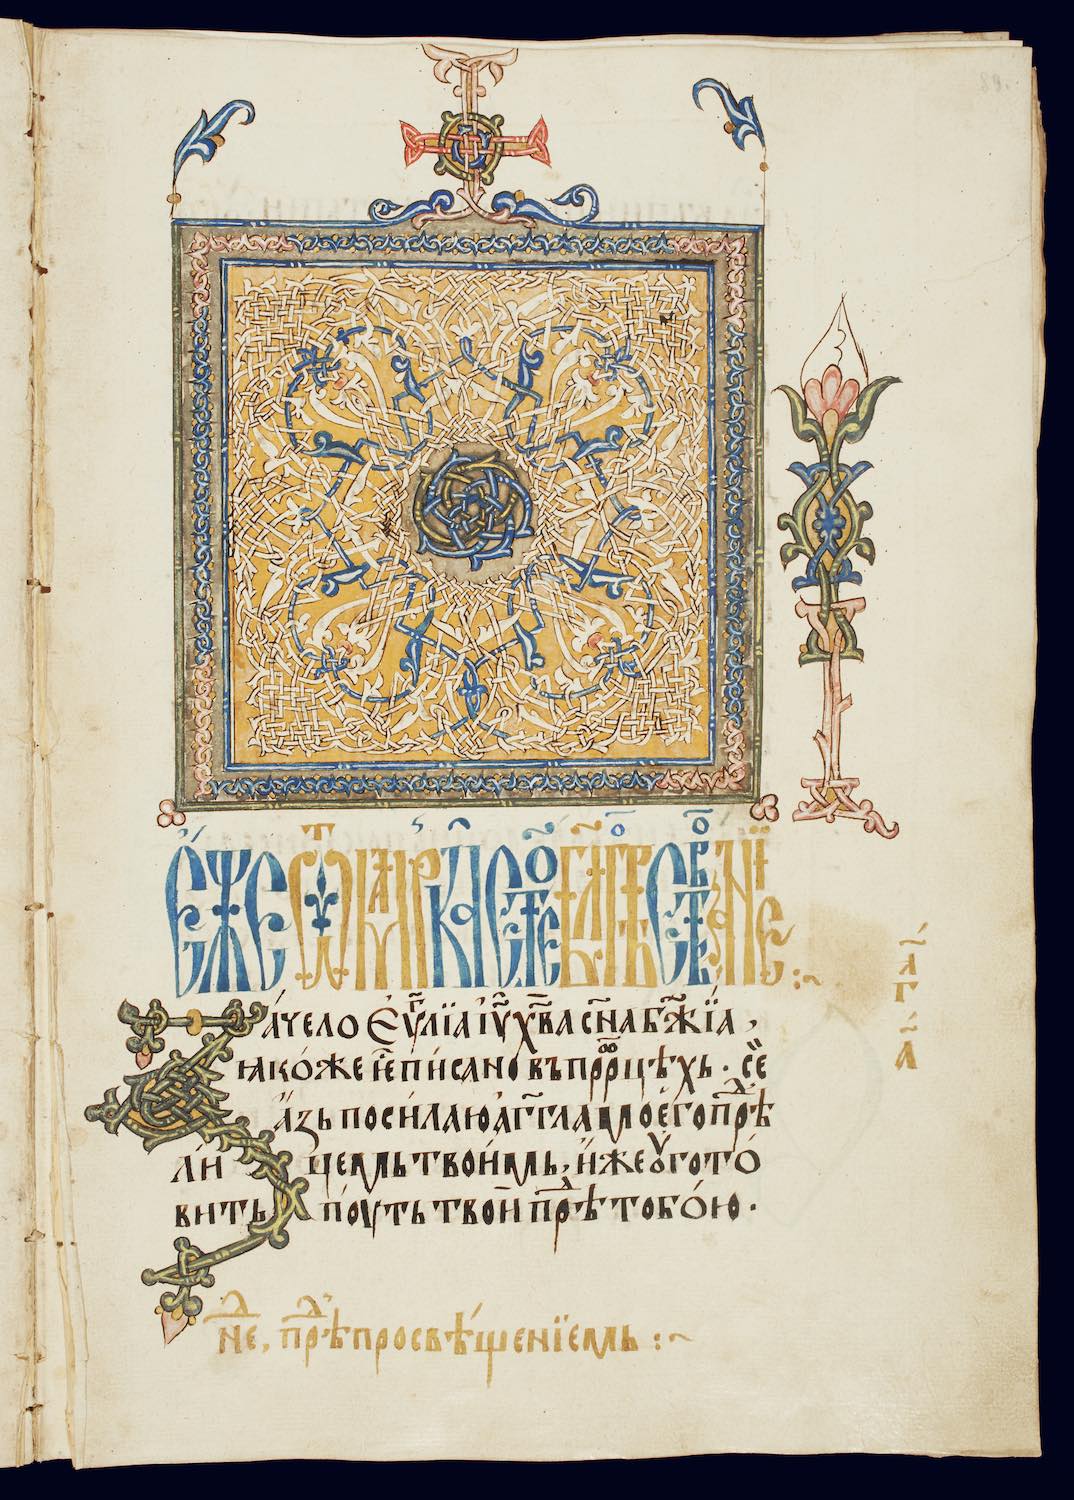 Е́же ѿ ма́рка ст҃о́е бл҃гове́ствова́нїе :~
За́чело є҆ѵⷢ҇лїа і҆ѵ҃ х҃ва сн҃а бж҃їа,
ꙗ҆ко́же є҆́ пи́сано въ прⷪ҇ро́цѣхь. Се́
а҆́зь поси́лаю а҆́гг҃ла мое́го прⷣѣ
ли́цемь твои́мь, и҆́же ᲂу҆гото́
вить пꙋ́ть тво́й прⷣѣ тобо́ю.
нⷣе, прⷣѣ просвѣ́щенїемь :~
гл҃а
а҃